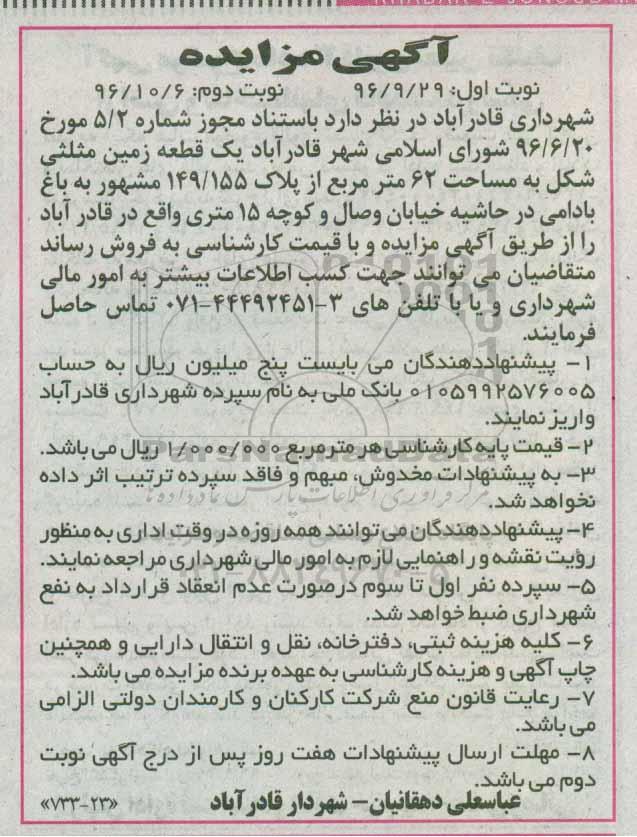 آگهی مزایده
نوبت اول: ۹۶/۹/۲۹ نوبت دوم: ۹۶/۱۰/۶
شهرداری قادرآباد در نظر دارد باستناد مجوز شماره ۵/۲ مورخ
۹۶/۶/۲۰ شورای اسلامی شهر قادرآباد یک قطعه زمین مثلثی
شکل به مساحت ۶۲ متر مربع از پلاک ۱۴۹/۱۵۵ مشهور به باغ
بادامی در حاشیه خیابان وصال و کوچه ۱۵ متری واقع در قادر آباد
را از طریق آگهی مزایده و با قیمت کارشناسی به فروش رساند
متقاضیان می توانند جهت کسب اطلاعات بیشتر به امور مالی
شهرداری و یا با تلفن های ۳-۴۴۴۹۲۴۵۱-۰۷۱ تماس حاصل
فرمایند.
۱- پیشنهاددهندگان می بایست پنج میلیون ریال به حساب
۰۱۰۵۹۹۲۵۷۶۰۰۵ بانک ملی به نام سپرده شهرداری قادرآباد
واریز نمایند.
۲- قیمت پایه کارشناسی هر متر مربع ۱/۰۰۰/۰۰۰ ریال می باشد.
۳- به پیشنهادات مخدوش، مبهم و فاقد سپرده ترتیب اثر داده
نخواهد شد.
۴- پیشنهاددهندگان می توانند همه روزه در وقت اداری به منظور
رؤیت نقشه و راهنمایی لازم به امور مالی شهرداری مراجعه نمایند.
۵- سپرده نفر اول تا سوم درصورت عدم انعقاد قرارداد به نفع
شهرداری ضبط خواهد شد.
۶- کلیه هزینه ثبتی، دفترخانه، نقل و انتقال دارایی و همچنین
چاپ آگهی و هزینه کارشناسی به عهده برنده مزایده می باشد.
۷- رعایت قانون منع شرکت کارکنان و کارمندان دولتی الزامی
می باشد.
۸- مهلت ارسال پیشنهادات هفت روز پس از درج آگهی نوبت
دوم می باشد.
عباسعلی دهقانیان- شهردار قادرآباد «۷۳۳-۲۳»